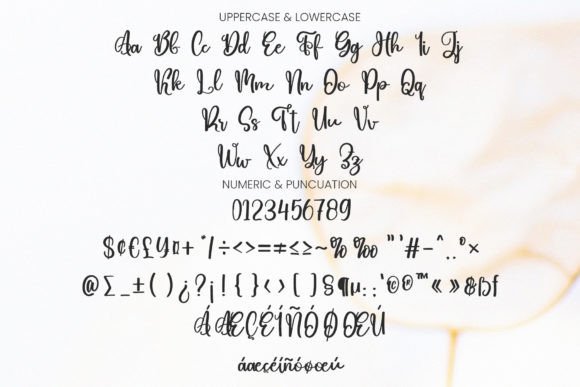 UPPERCASE & LOWERCASE
Aa Bb Cc Dd Ee Ff Gg Hh Ii Jj
Kk Ll Mm Nn Oo Pp Qq
Rr Ss Tt Uu Vv
Ww Xx Yy Zz
NUMERIC & PUNCUATION
0123456789
$¢€£¥¤+*/÷<>=≠≤≥~%‰"'#-^..°×
@∑_±()¿?¡!{}‹›[]§¶µ::'©®™«»&ßf
ÁÆÇÉÍÑÓØŒÚ
áæçéíñóøœú